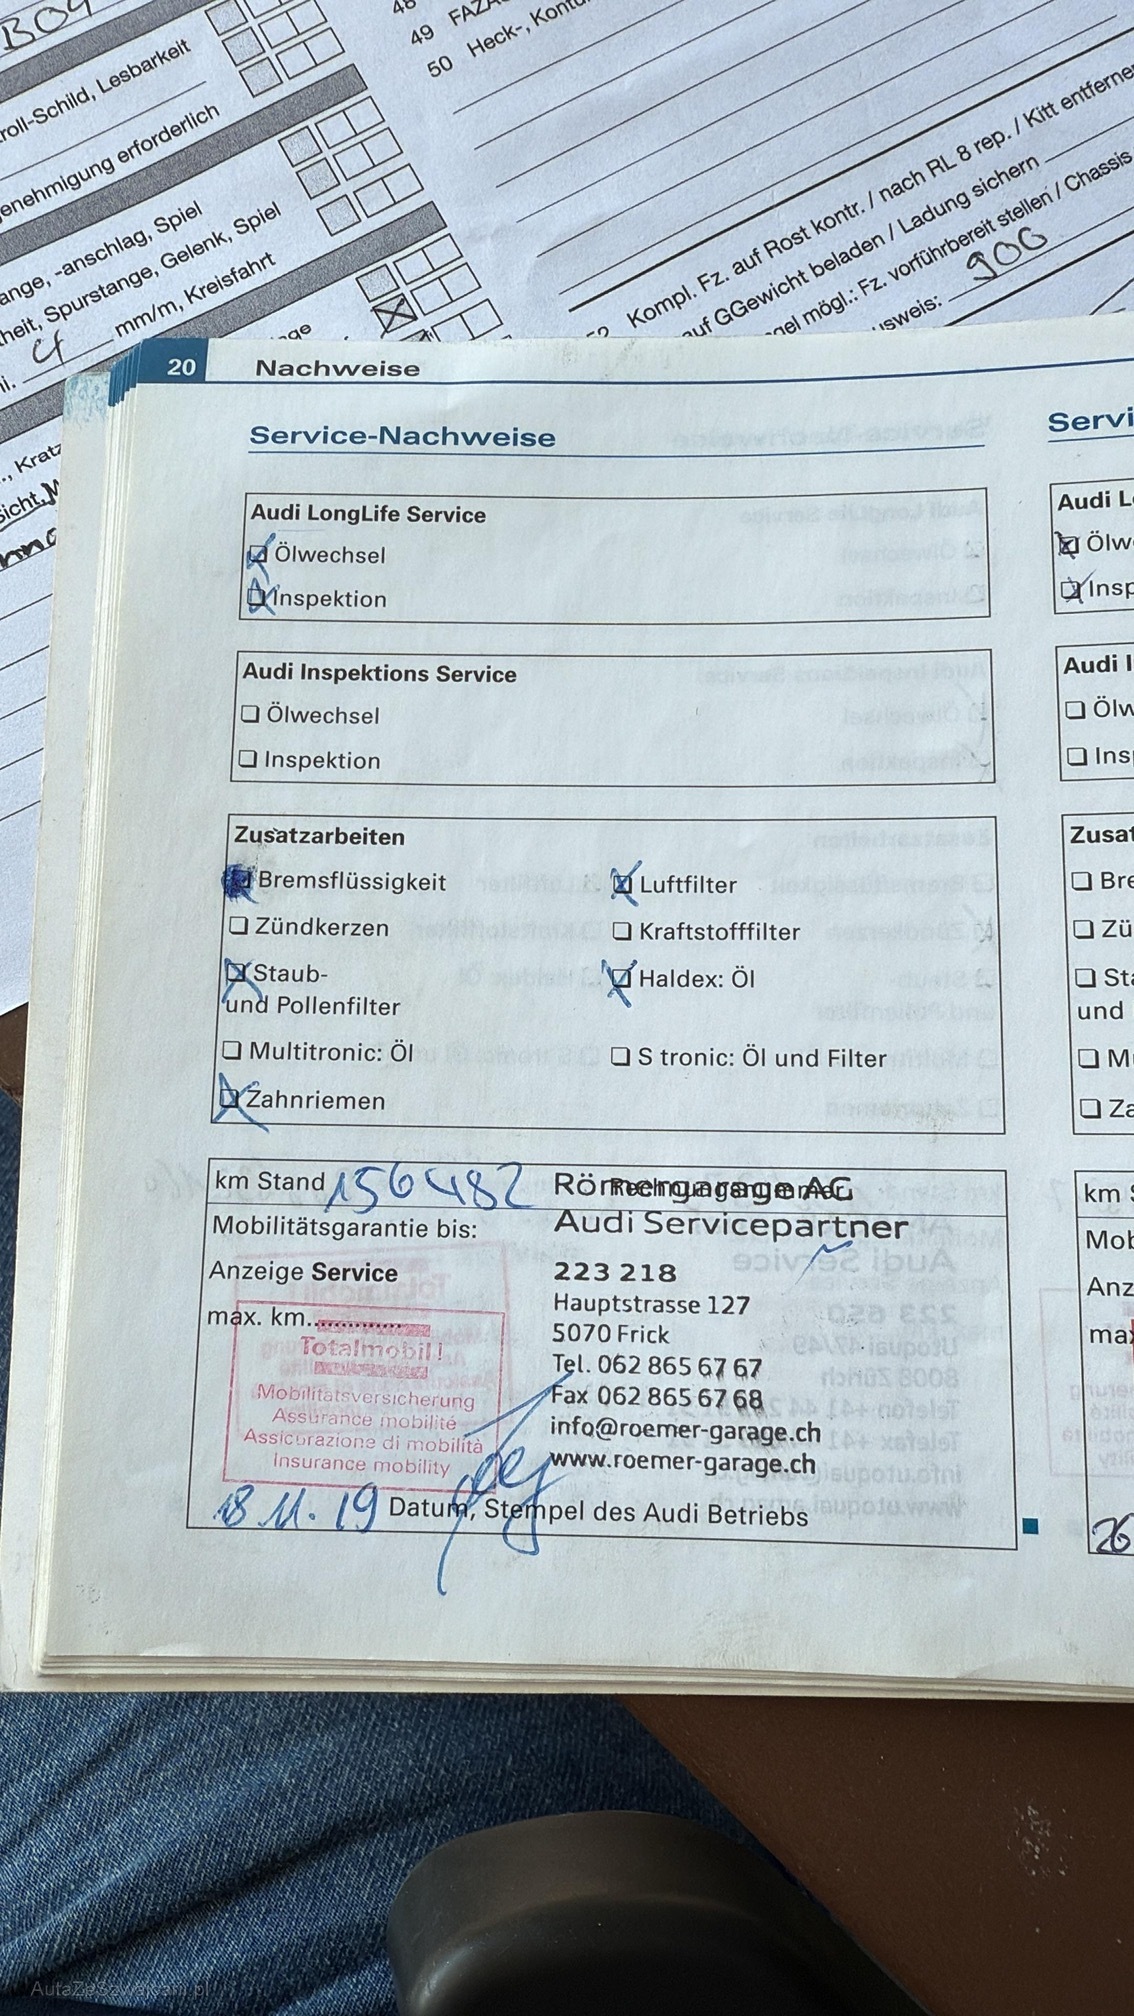 BO4
roll-Schild, Lesbarkeit
enehmigung erforderlich
ange, -anschlag, Spiel
heit, Spurstange, Gelenk, Spiel
mm/m, Kreisfahrt
48
49 FAZA
50 Heck-, Kontu
Kompl. Fz. auf Rost kontr. / nach RL 8 rep. / Kitt entferne
uf GGewicht beladen / Ladung sichern
gel mögl.: Fz. vorführbereit stellen / Chassis
usweis: 900
20 Nachweise
Service-Nachweise
Audi LongLife Service
Ölwechsel
Inspektion
Audi Inspektions Service
Ölwechsel
Inspektion
Zusatzarbeiten
Bremsflüssigkeit
Luftfilter
Zündkerzen
Kraftstofffilter
Staub-
und Pollenfilter
Haldex: Öl
Multitronic: Öl
S tronic: Öl und Filter
Zahnriemen
km Stand 156482
Rechnungsnummer
Römergarage AG
Mobilitätsgarantie bis:
Audi Servicepartner
Anzeige Service
223 218
max. km
Hauptstrasse 127
5070 Frick
Tel. 062 865 67 67
Fax 062 865 67 68
info@roemer-garage.ch
www.roemer-garage.ch
Totalmobil!
Mobilitätsversicherung
Assurance mobilité
Assicurazione di mobilità
Insurance mobility
18 11. 19 Datum, Stempel des Audi Betriebs
Servi
Audi L
Ölw
Insp
Audi I
Ölw
Ins
Zusat
Bre
Zü
Sta
und
Mu
Za
km S
Mob
Anz
max
26
AutaZeSzwajcarii.pl